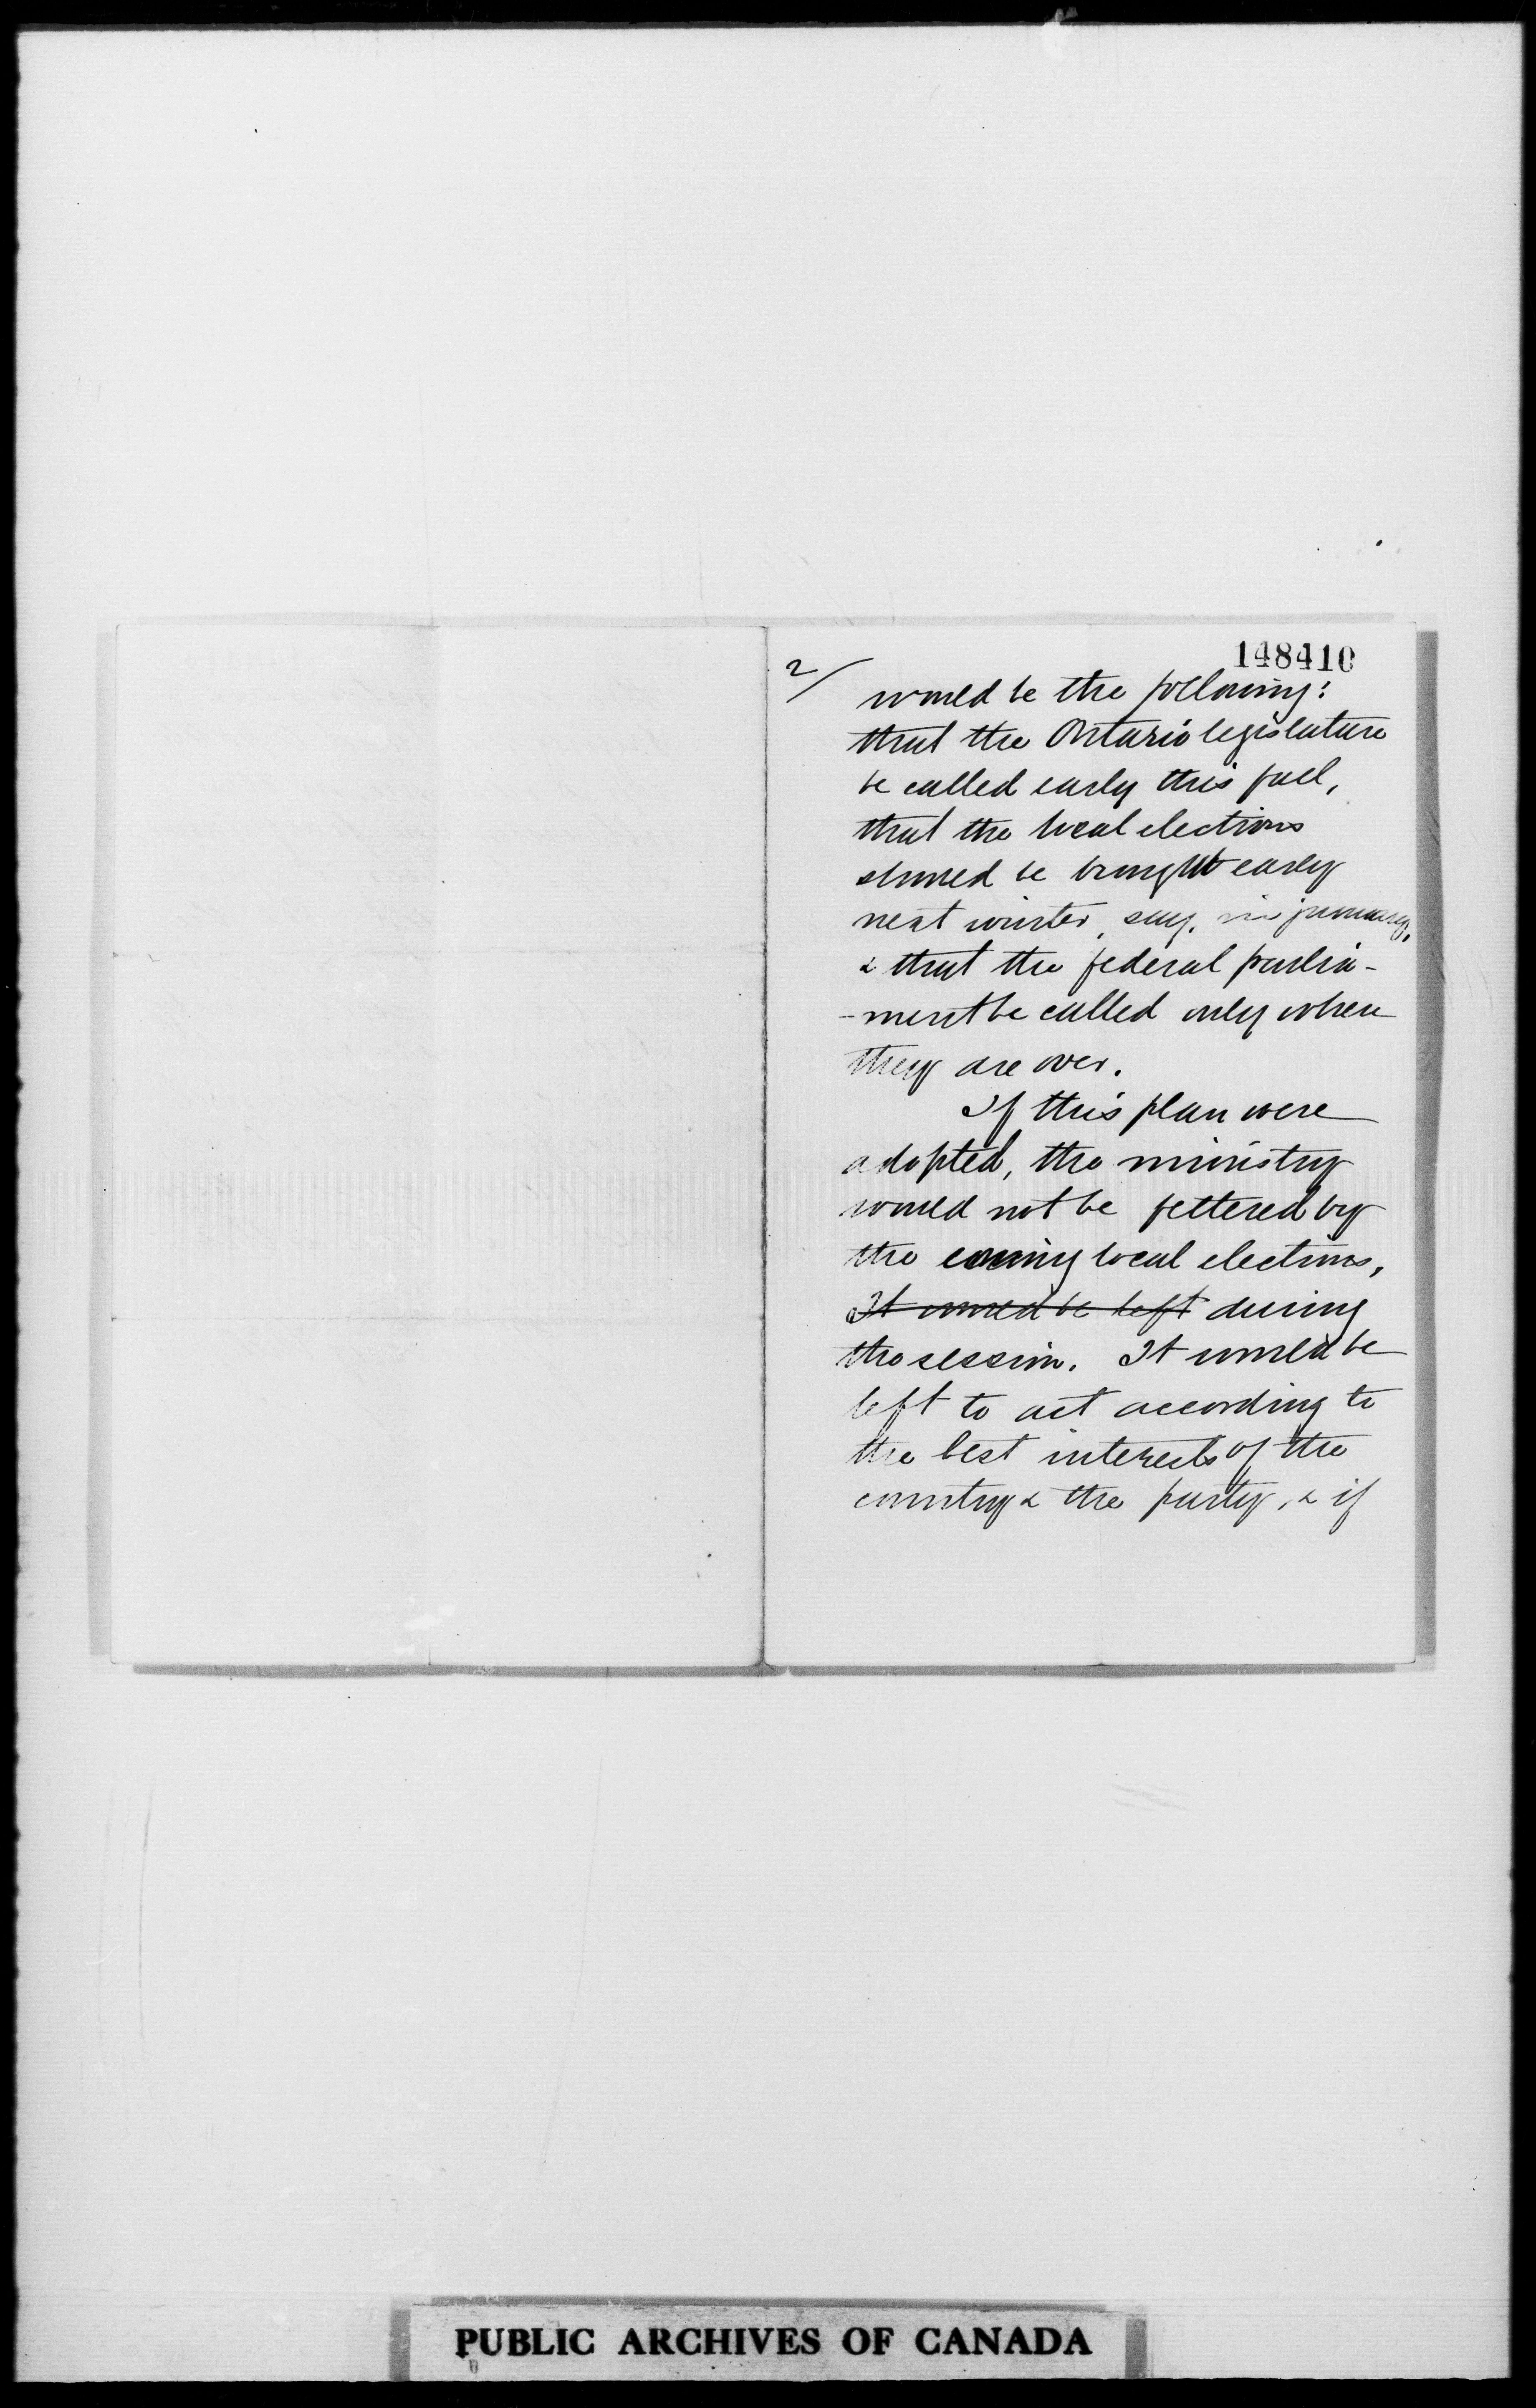 148410
2/
would be the following:
that the Ontario legislature
be called early this fall,
that the local elections
should be brought early
next winter, say, in january,
& that the federal parlia-
-ment be called only when
they are over.
If this plan were
adopted, the ministry
would not be fettered by
the coming local elections,
It would be left during
the session. It would be
left to act according to
the best interests of the
country & the party, & if
PUBLIC ARCHIVES OF CANADA